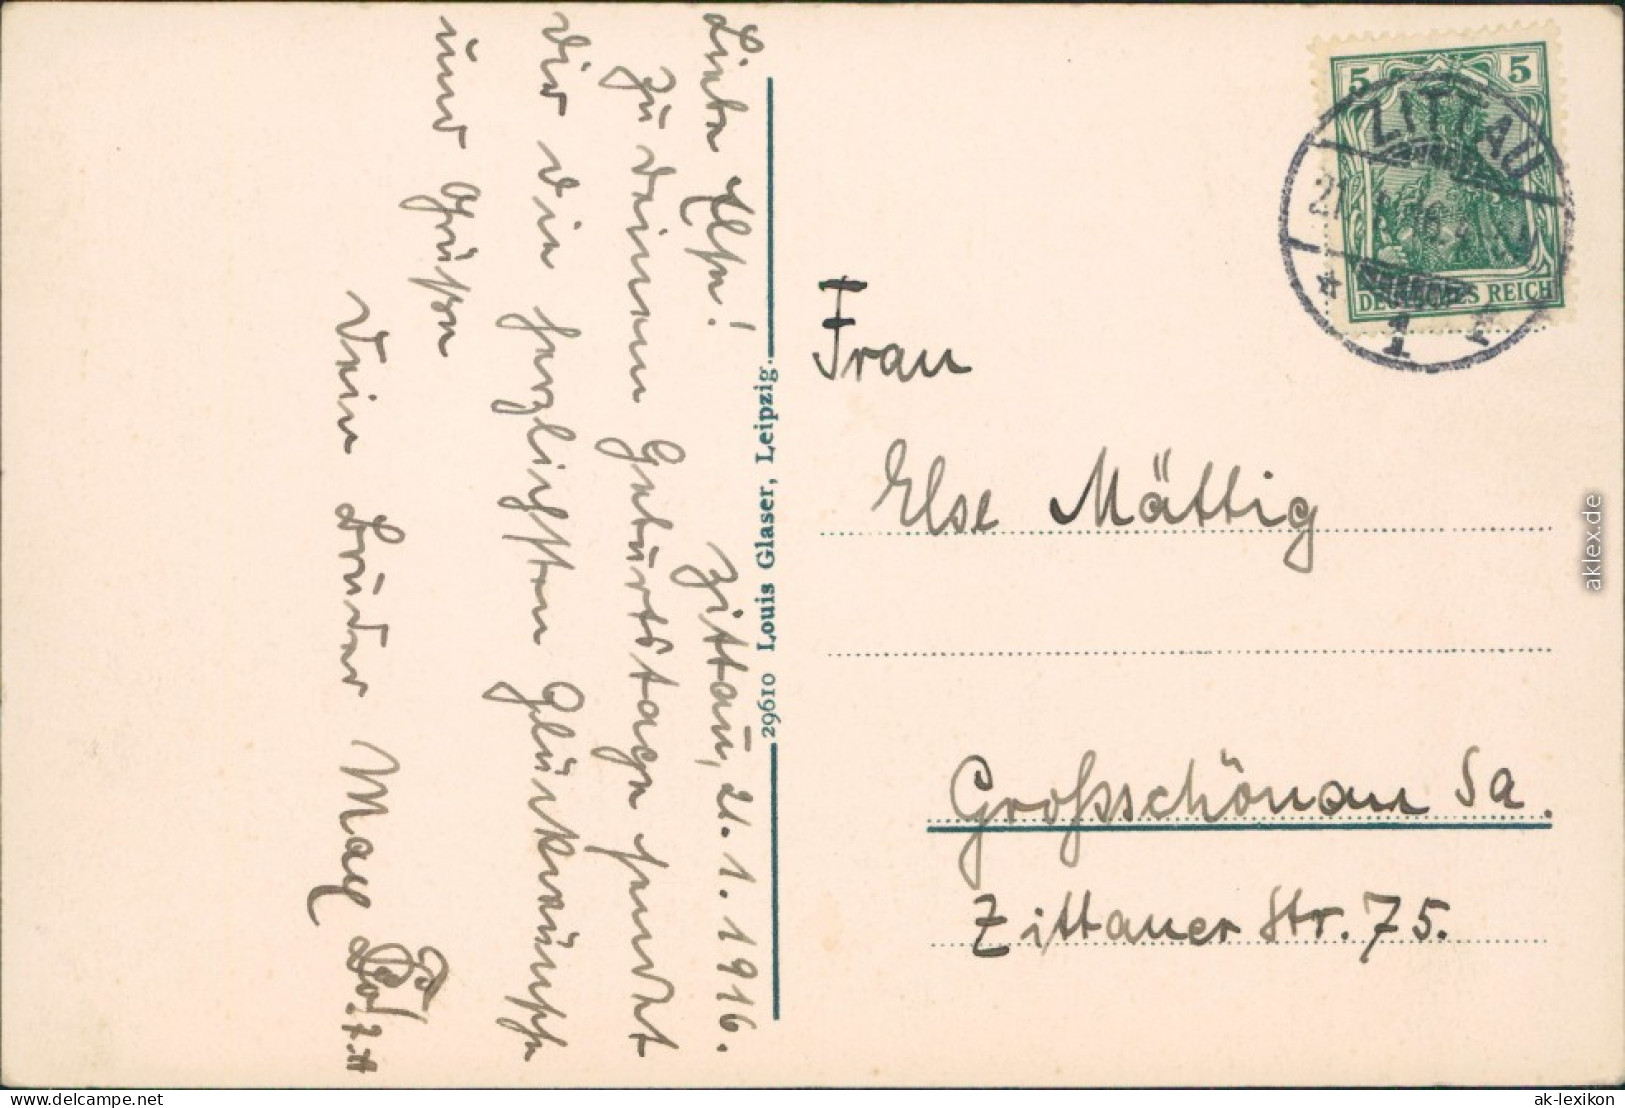 Zittau, 21. 1. 1916.
Liebe Else!
Zu deinem Geburtstage sendet
dir die herzlichsten Glückwünsche
und Grüße
Dein Bruder Max
29610 Louis Glaser, Leipzig.
5 5
DEUTSCHES REICH
ZITTAU
21
* 1
Frau
Else Mättig
Großschönau Sa.
Zittauer Str. 75.
aklex.de
www.delcampe.net
ak-lexikon